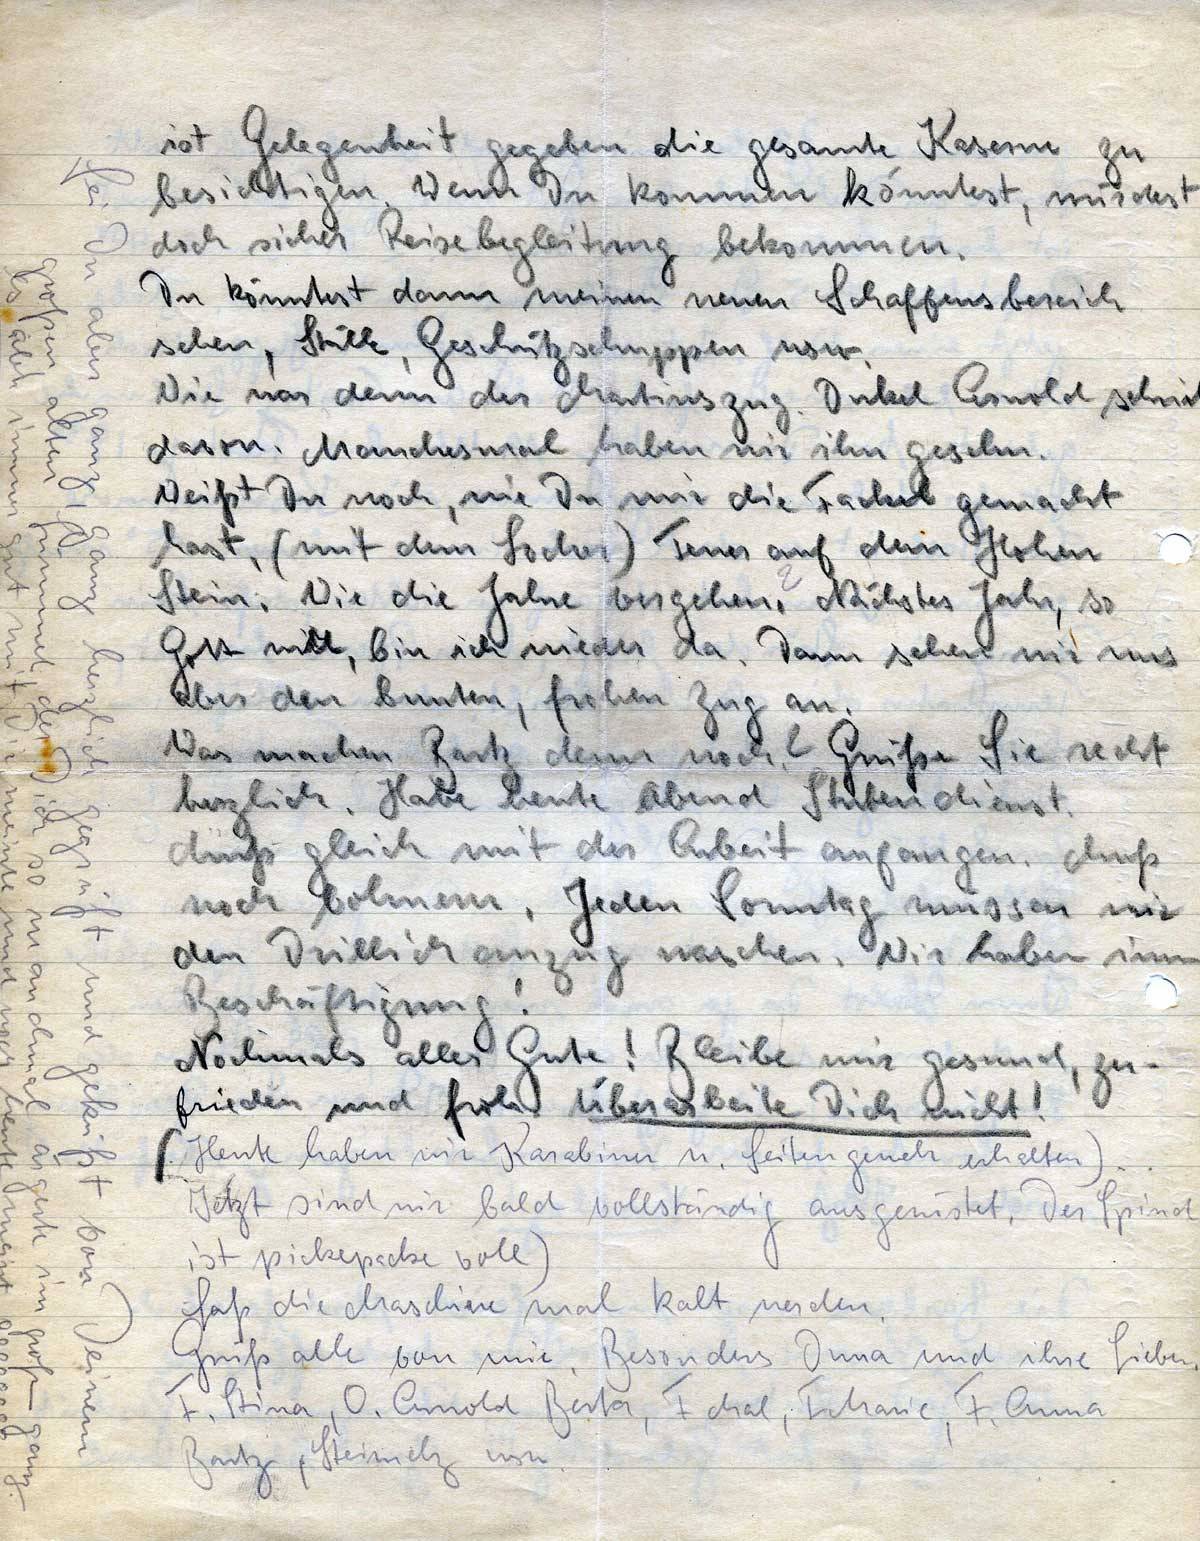 ist Gelegenheit gegeben die gesamte Kaserne zu
besichtigen. Wenn Du kommen könntest, würdest
doch sicher Reisebegleitung bekommen.
Du könntest dann meinen neuen Schaffensbereich
sehen, Ställe, Geschützschuppen usw.
Wie war denn der Martinszug. Onkel Arnold schrieb
davon. Manchesmal haben wir ihn gesehn.
Weißt Du noch, wie Du mir die Fackel gemacht
hast, (mit dem Locher) Feuer auf dem Hohen
Stein. Wie die Jahre vergehen. Nächstes Jahr, so
Gott will, bin ich wieder da. Dann sehen wir uns
aber den bunten, frohen Zug an.
Was machen Bartz denn noch? Grüße Sie recht
herzlich. Habe heute Abend Stubendienst.
Muß gleich mit der Arbeit anfangen. Muß
noch bohnern. Jeden Sonntag müssen wir
den Drillichanzug waschen. Wir haben
Beschäftigung!
Nochmals alles Gute! Bleibe mir gesund, zu-
frieden und froh. Überarbeite Dich nicht!
(Heute haben wir Karabiner u. Seitengewehr erhalten)..
Jetzt sind wir bald vollständig ausgerüstet. Der Spind
ist pickepacke voll)
Laß die Maschine mal kalt werden.
Grüß alle von mir. Besonders Oma und ihre Lieben.
T. Stina, O. Arnold Berta, T. Mal, T. Marie, T. Anna
Bartz, Steinmetz usw.
Sei Du aber ganz, ganz herzlich gegrüßt und geküßt von Deinem
großen alten Fummel, der Dich so manchmal ärgerte im großen ganzen
es aber immer gut mit Dir meinte und noch heute meint